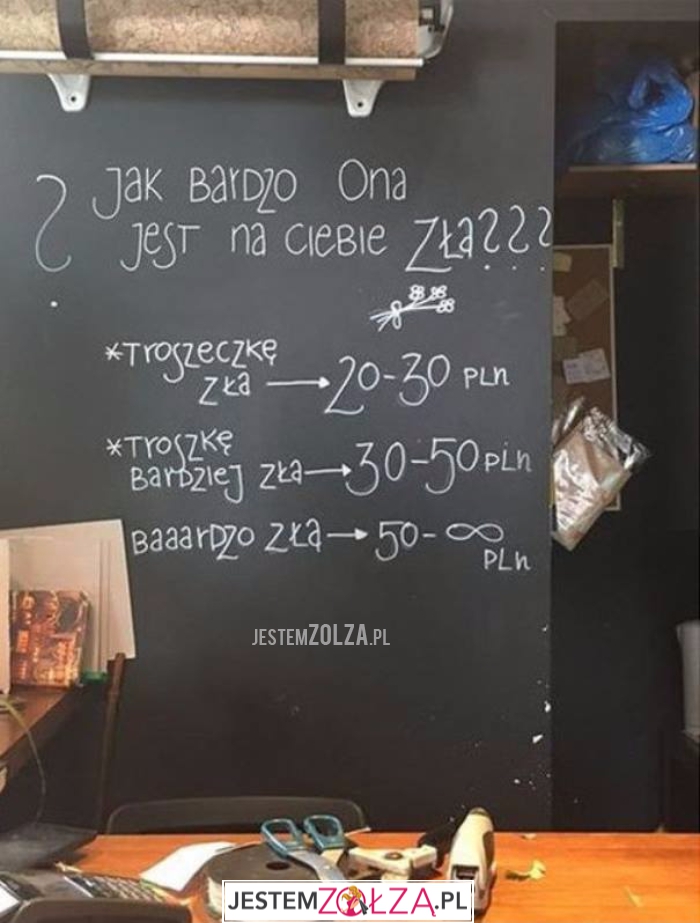 Jak Bardzo Ona
jest na ciebie zła???
?
*Troszeczkę
zła → 20-30 PLN
*Troszkę
bardziej zła → 30-50 PLN
Baaardzo zła → 50-∞
PLN
JESTEMZOLZA.PL
JESTEMZOŁZA.PL